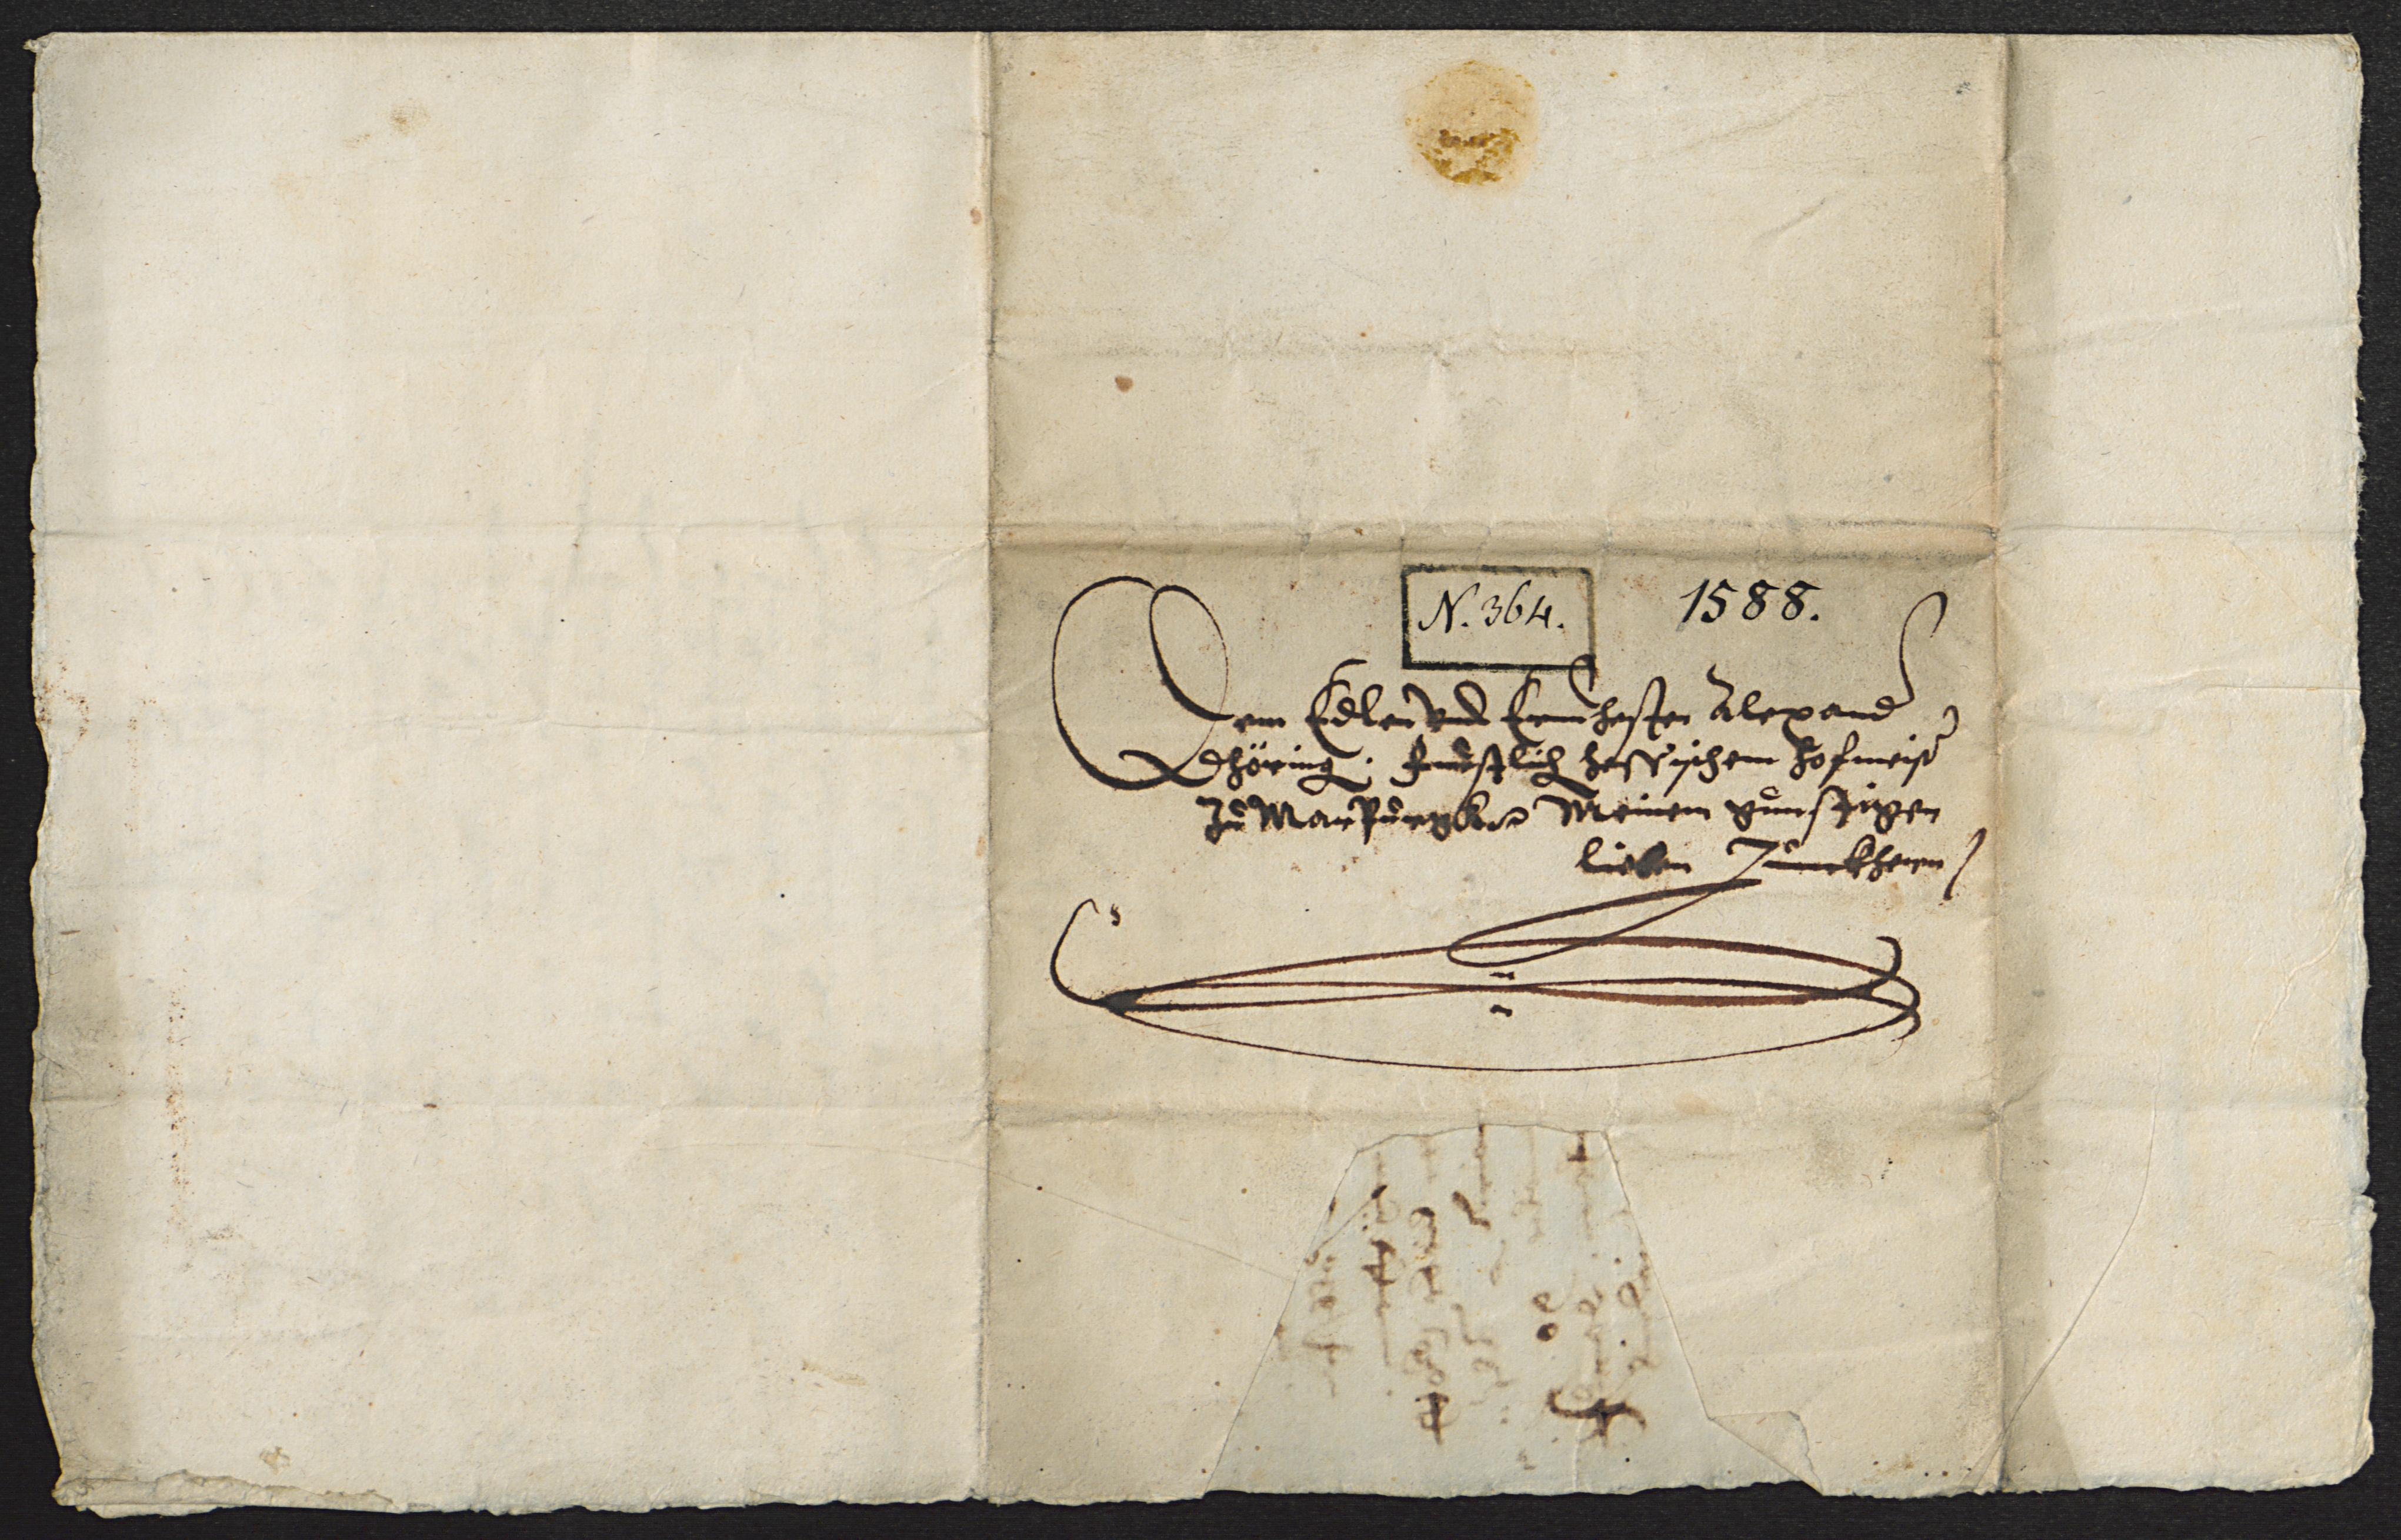 N. 364. 1588.
Dem Edlen vnd Ernvhesten Alexand
Dhöring. Furstlich hessischem Hofmeist
Zu Marpurgk Meinem gunstigen
lieben Junckhern